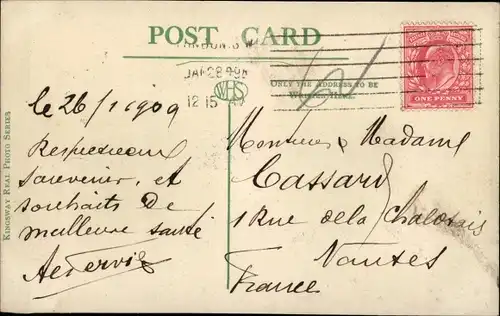 POST CARD
LONDON. S.W
JA 28 09
12 15
WHS
ONLY THE ADDRESS TO BE
WRITTEN HERE
ONE PENNY
KINGSWAY REAL PHOTO SERIES
le 26/1 1909
Respectueux
souvenir, et
souhaits de
meilleure santé
Monsieur & Madame
Cassard
1 Rue de la Chalotais
Nantes
France